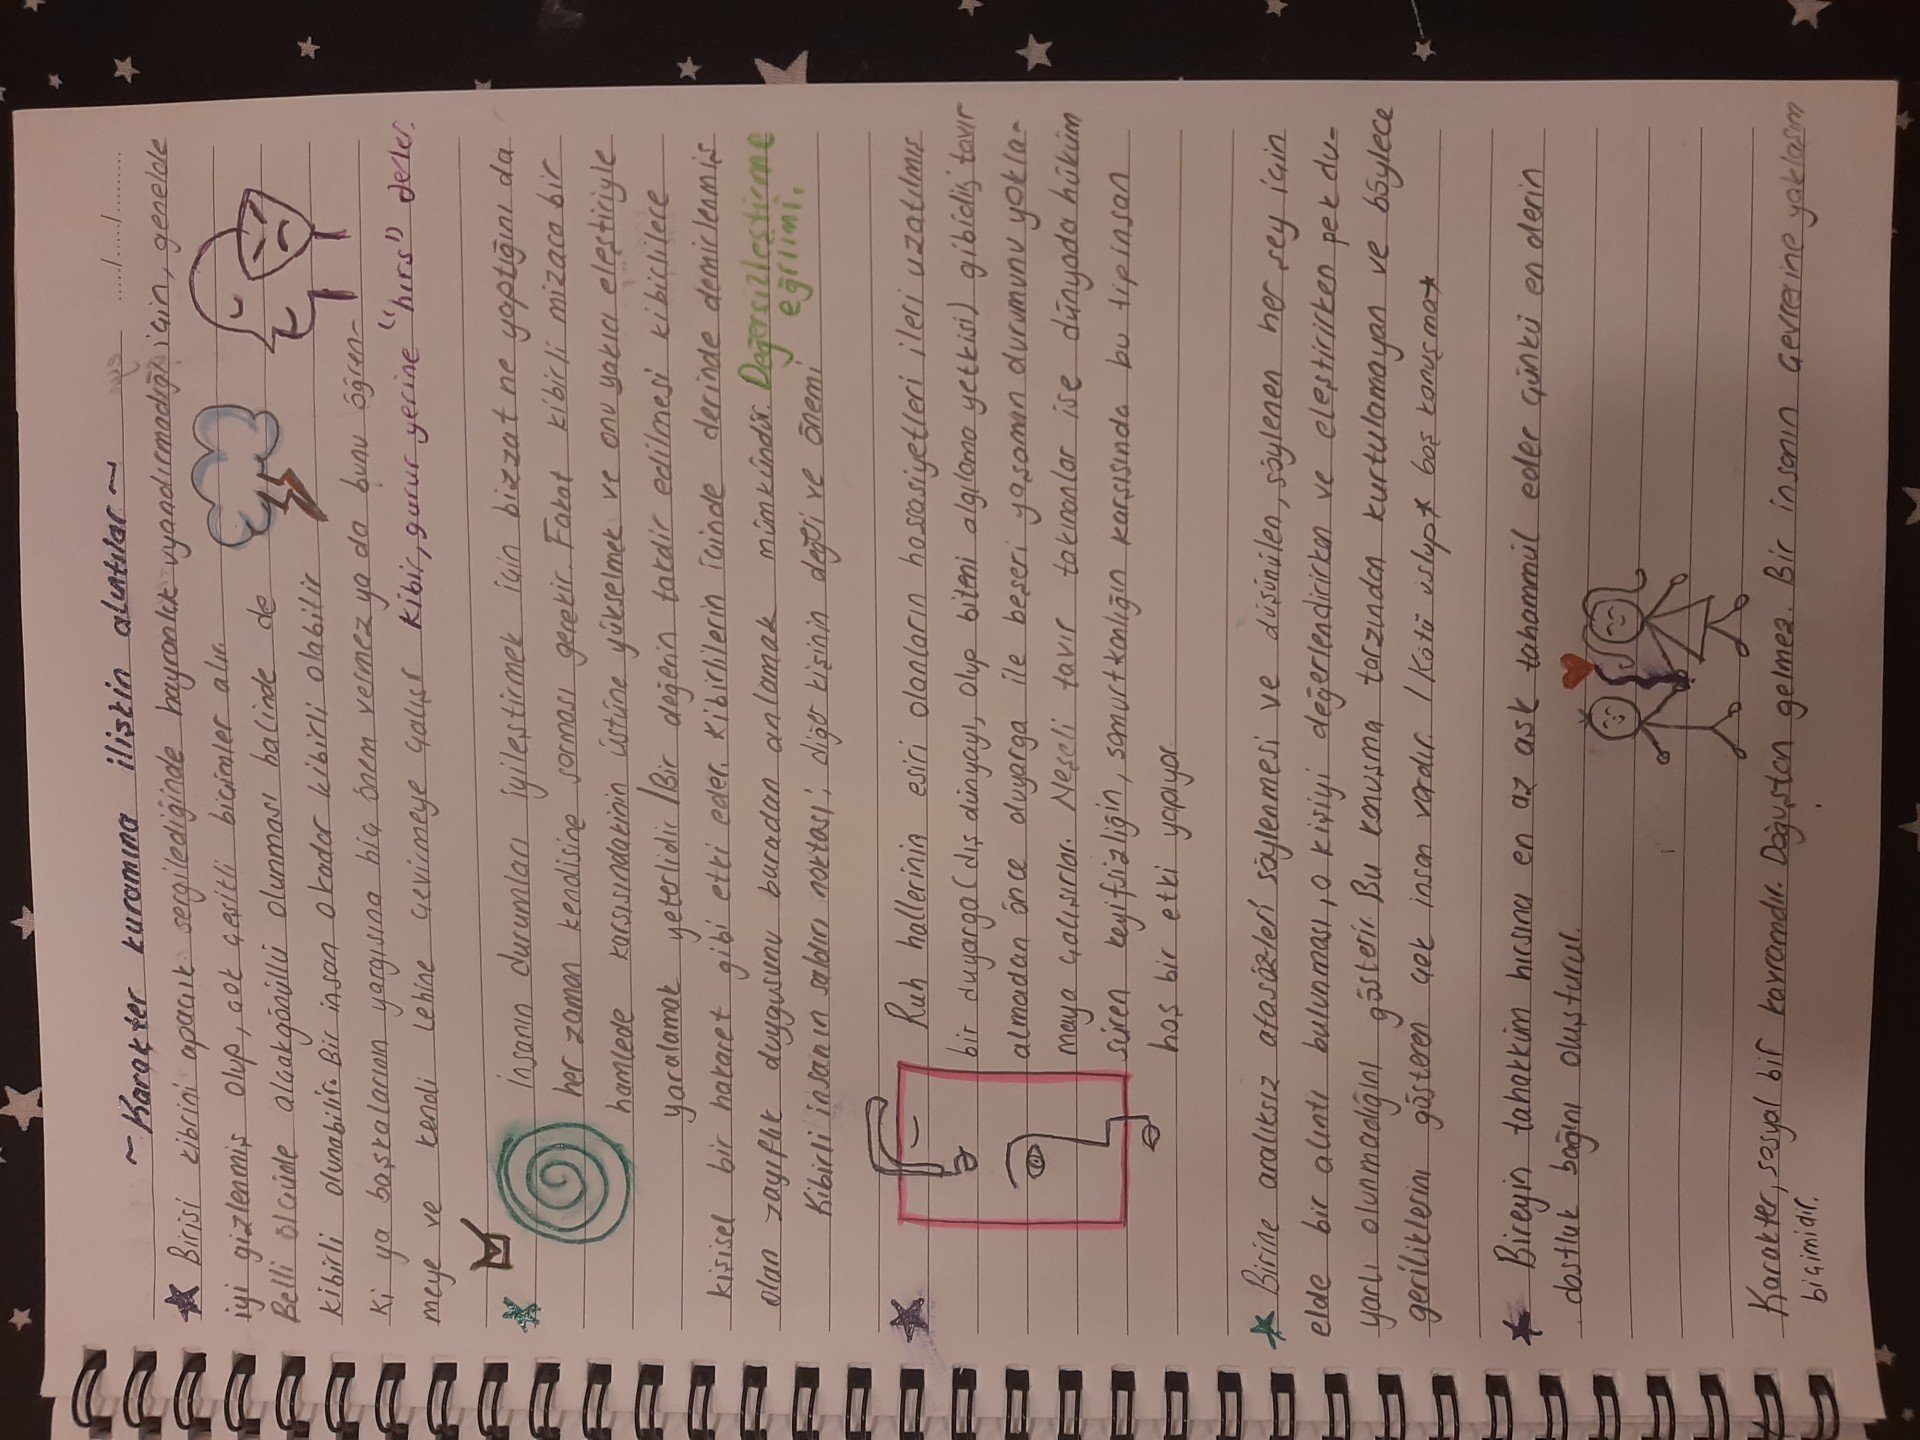 ....../....../......
~ Karakter kuramına ilişkin alıntılar ~
Birisi kibrini apaçık sergilediğinde hayranlık uyandırmadığı için, genelde
iyi gizlenmiş olup, çok çeşitli biçimler alır.
Belli ölçüde alçakgönüllü olunması halinde de
kibirli olunabilir. Bir insan okadar kibirli olabilir
ki ya başkalarının yargısına hiç önem vermez ya da bunu öğren-
meye ve kendi lehine çevirmeye çalışır kibir, gurur yerine "hırs" derler.
İnsanın durumları iyileştirmek için bizzat ne yaptığını da
her zaman kendisine sorması gerekir. Fakat kibirli mizaca bir
hamlede karşısındakinin üstüne yükselmek ve onu yakıcı eleştiriyle
yaralamak yeterlidir / Bir değerin takdir edilmesi kibiclilere
kişisel bir hakaret gibi etki eder. Kibirlilerin içinde derinde demirlenmiş
olan zayıflık duygusunu buradan anlamak mümkündür. Değersizleştirme
eğrilimi.
Kibirli insanın saldırı noktası; diğer kişinin değeri ve önemi
Ruh hallerinin esiri olanların hassasiyetleri ileri uzatılmış
bir duyarga (dış dünyayı, olup biteni algılama yetkisi) gibidir, tavır
almadan önce oluyarga ile beşeri yaşamın durumunu yokla-
meya çalışırlar. Neşeli tavır takınanlar ise dünyada hüküm
süren keyifsizliğin, somurtkanlığın karşısında bu tip insan
hoş bir etki yapıyor
Birine aralıksız atasözleri söylenmesi ve düşünülen, söylenen her şey için
elde bir alıntı bulunması, o kişiyi değerlendirirken ve eleştirirken pek du-
yarlı olunmadığını gösterir. Bu konuşma tarzından kurtulamayan ve böylece
geriliklerini gösteren çok insan vardır. / Kötü üslup * boş konuşma *
Bireyin tahakküm hırsına en az aşk tahammül eder çünkü en derin
dostluk bağını oluşturur.
Karakter, sosyal bir kavramdır. Doğuştan gelmez. Bir insanın çevresine yaklaşım
biçimidir.